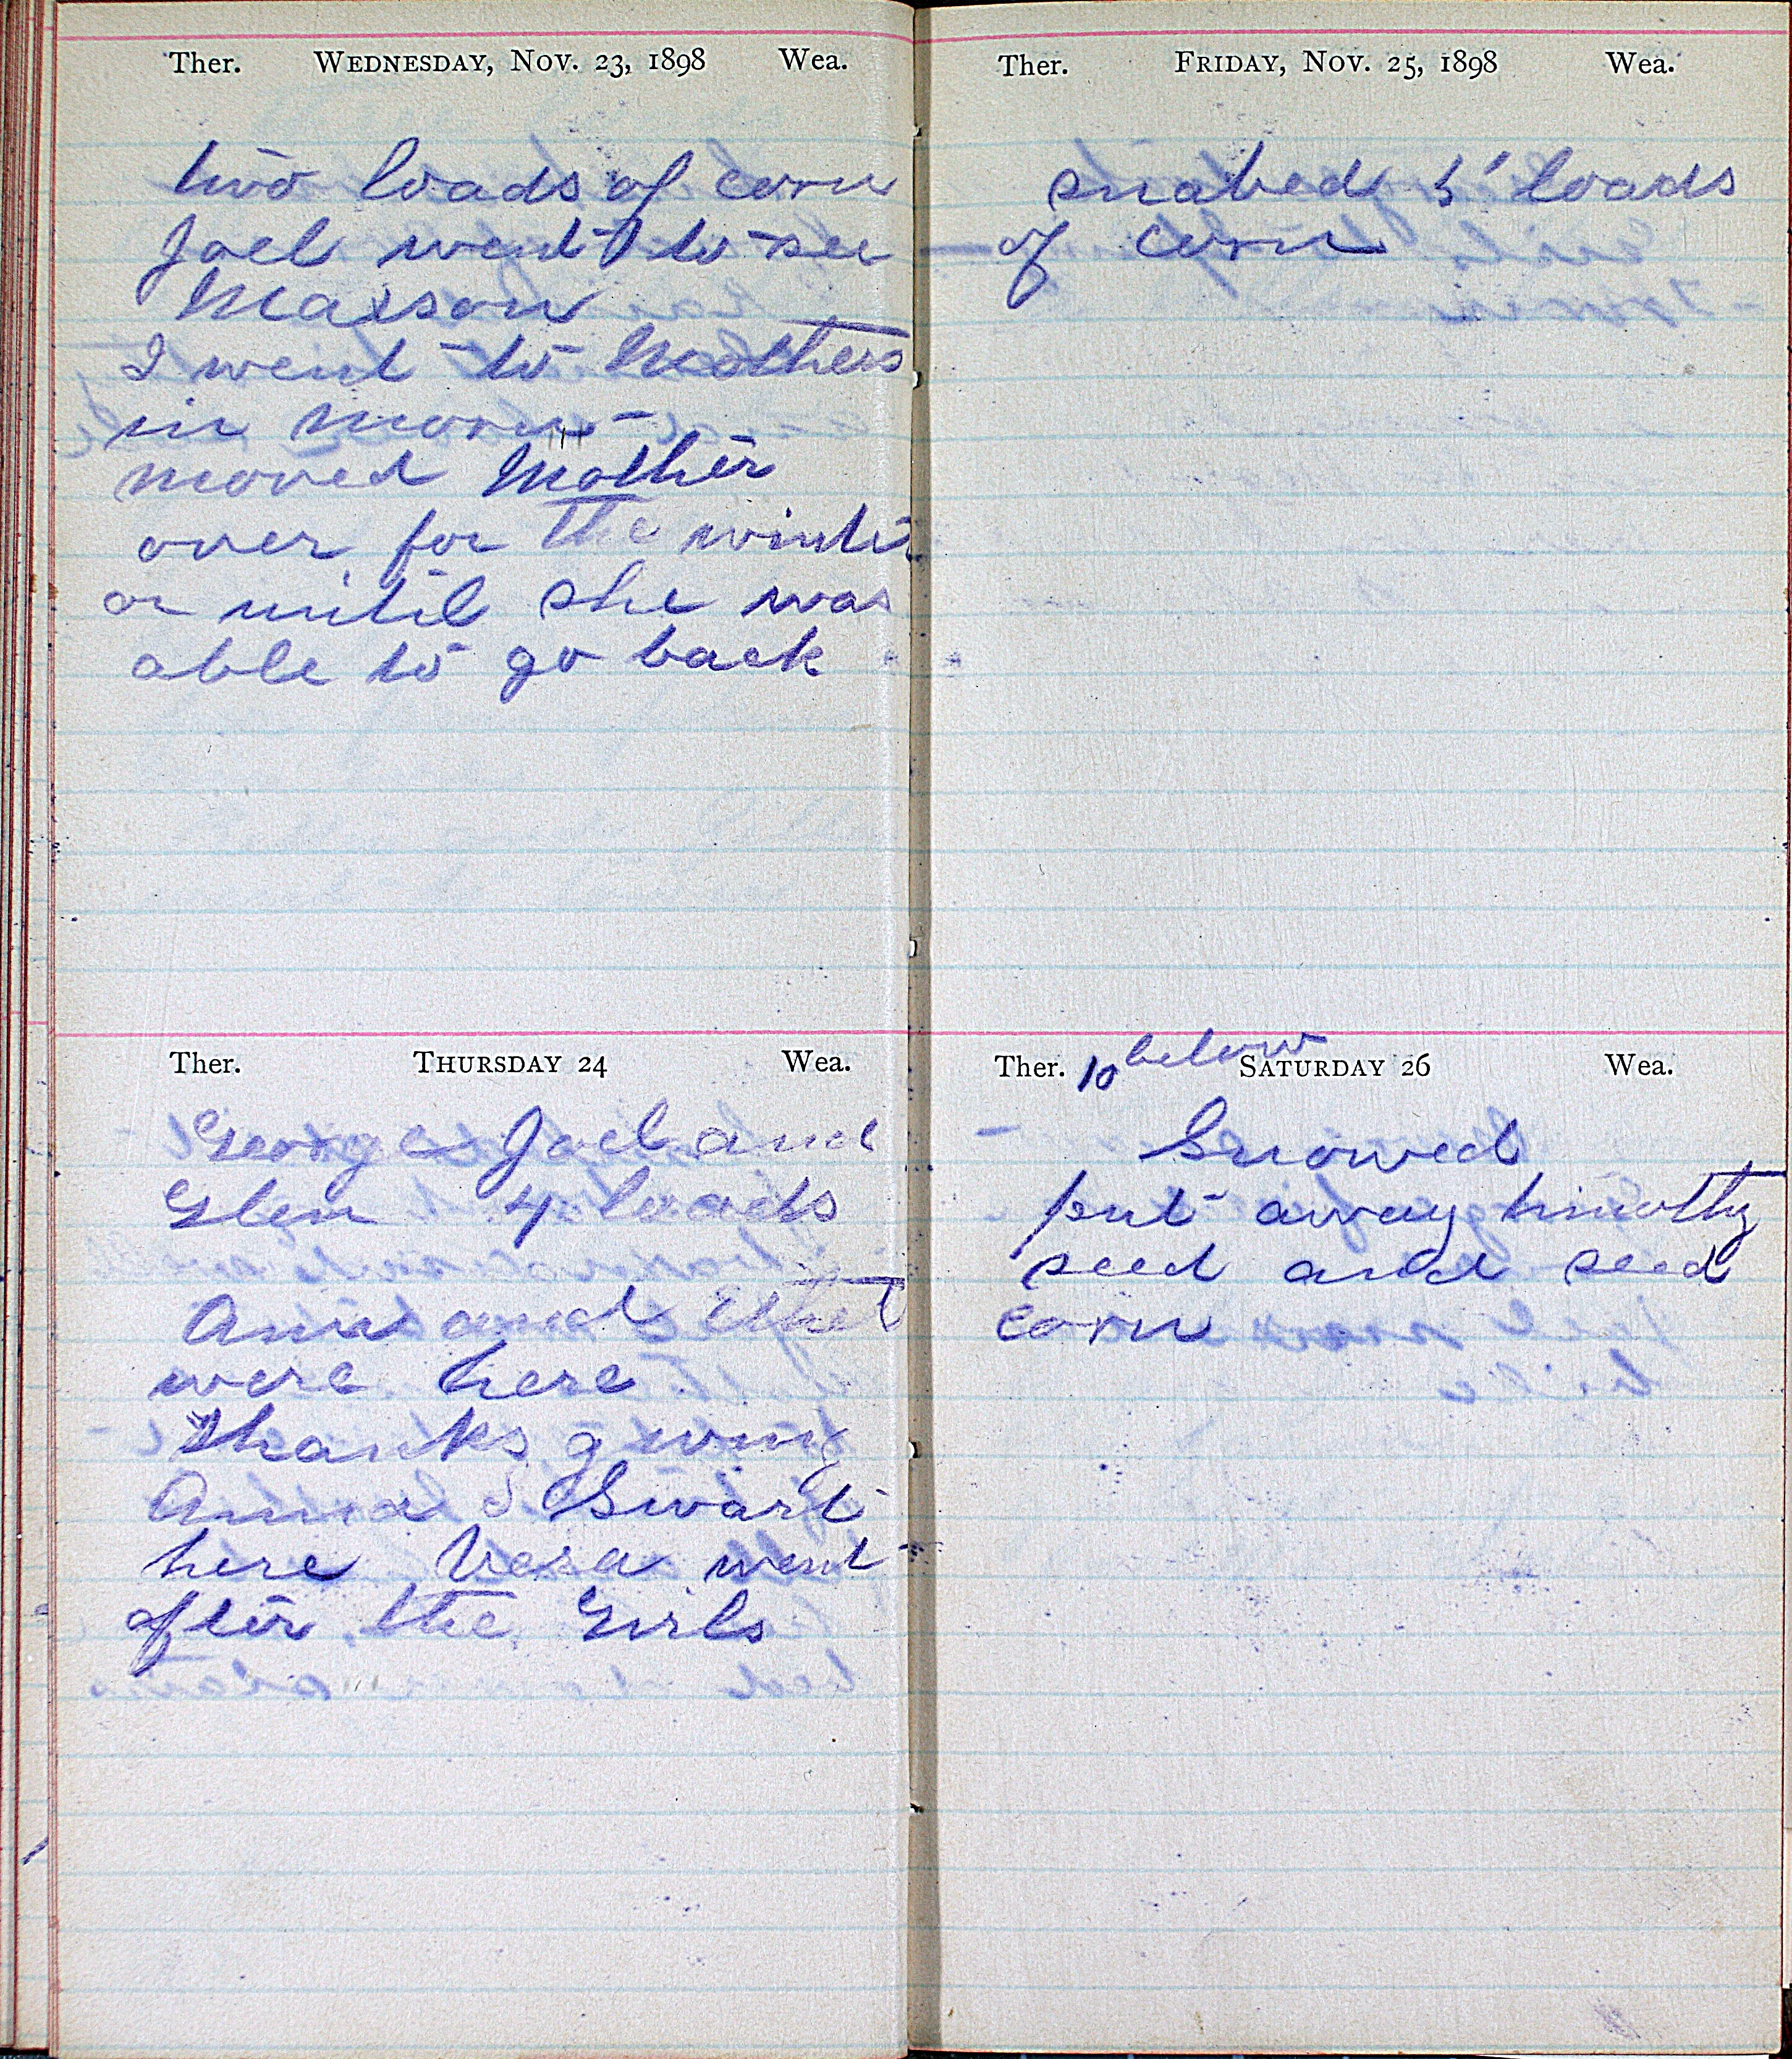 Ther. WEDNESDAY, NOV. 23, 1898 Wea.
two loads of corn
Joel went to see
Maxson
I went to Mothers
in morn
moved Mother
over for the winter
or until she was
able to go back
Ther. THURSDAY 24 Wea.
George Joel and
Glen 4 loads
Ann and Ethel
were here
Thanks giving
Anna S Swart
here Vera went
after the Girls
Ther. FRIDAY, NOV. 25, 1898 Wea.
snabed 5 loads
of corn
Ther. 10 below SATURDAY 26 Wea.
Snowed
put away timothy
seed and seed
corn